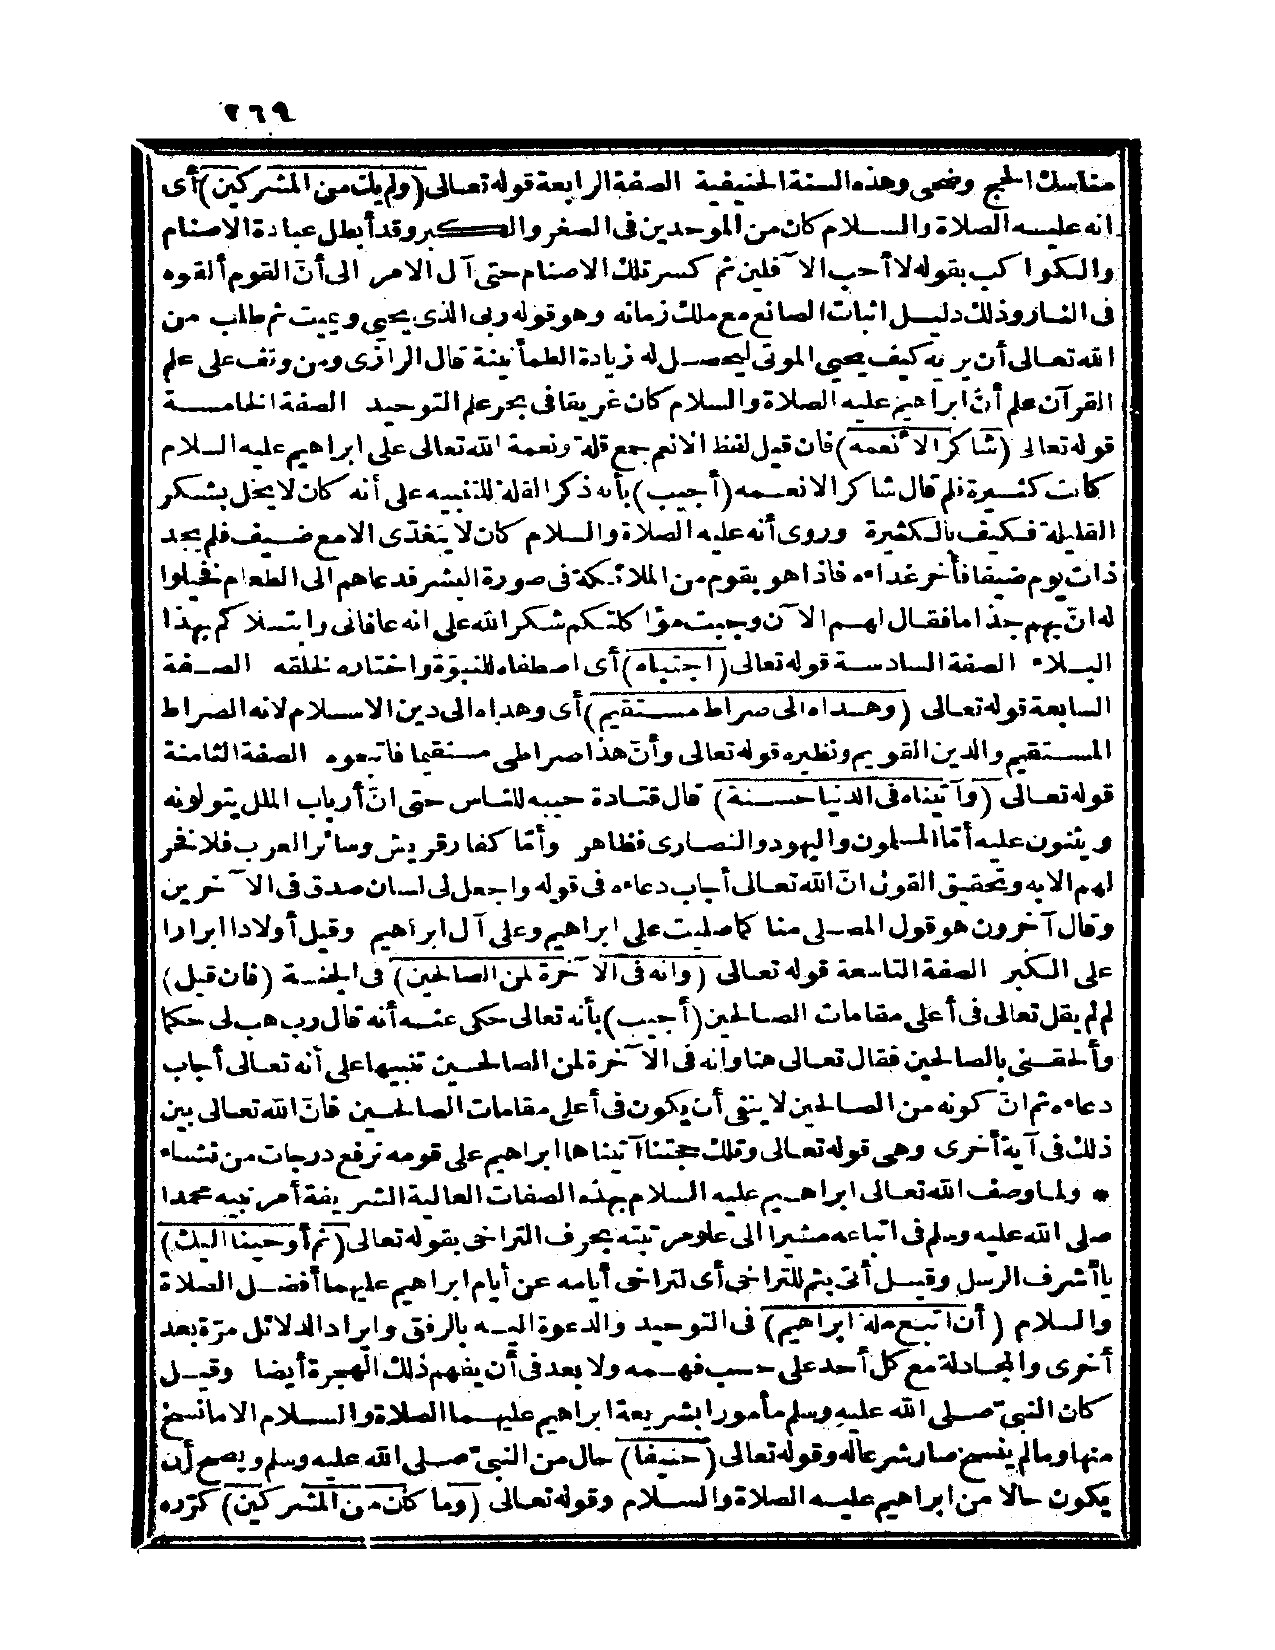 ٢٦٩
مناسك الحج وضحى وهذه السنة الحنيفية الصفة الرابعة قوله تعالى (ولم يك من المشركين) أى
انه عليه الصلاة والسلام كان من الموحدين فى الصغر والكبر وقد أبطل عبادة الاصنام
والكواكب بقوله لا أحب الآفلين ثم كسر تلك الاصنام حتى آل الامر الى أنّ القوم ألقوه
فى النار وذلك دليل اثبات الصانع مع ملك زمانه وهو قوله ربى الذى يحيى ويميت ثم طلب من
الله تعالى أن يريه كيف يحيى الموتى ليحصل له زيادة الطمأنينة قال الرازى ومن وقف على علم
القرآن علم أنّ ابراهيم عليه الصلاة والسلام كان غريقا فى بحر علم التوحيد الصفة الخامسة
قوله تعالى (شاكرا لأنعمه) فان قيل لفظ الانعم جمع قلة ونعمة الله تعالى على ابراهيم عليه السلام
كانت كثيرة فلم قال شاكرا لانعمه (أجيب) بأنه ذكر القلة للتنبيه على أنه كان لا يخل بشكر
القليلة فكيف بالكثيرة وروى أنه عليه الصلاة والسلام كان لا يتغدّى الامع ضيف فلم يجد
ذات يوم ضيفا فأخر غداءه فاذا هو بقوم من الملائكة فى صورة البشر فدعاهم الى الطعام فخيلوا
له انّ بهم جذاما فقال لهم الآن وجبت مؤاكلتكم شكرا لله على انه عافانى وابتلاكم بهذا
البلاء الصفة السادسة قوله تعالى (اجتباه) أى اصطفاه للنبوّة واختاره لخلقه الصفة
السابعة قوله تعالى (وهداه الى صراط مستقيم) أى وهداه الى دين الاسلام لانه الصراط
المستقيم والدين القويم ونظيره قوله تعالى وأنّ هذا صراطى مستقيما فاتبعوه الصفة الثامنة
قوله تعالى (وآتيناه فى الدنيا حسنة) قال قتادة حببه للناس حتى انّ أرباب الملل يتولونه
ويثنون عليه أمّا المسلمون واليهود والنصارى فظاهر وأمّا كفار قريش وسائر العرب فلا فخر
لهم الا به وتحقيق القول انّ الله تعالى أجاب دعاءه فى قوله واجعل لى لسان صدق فى الآخرين
وقال آخرون هو قول المصلى منا كما صليت على ابراهيم وعلى آل ابراهيم وقيل أولادا ابرارا
على الكبر الصفة التاسعة قوله تعالى (وانه فى الآخرة لمن الصالحين) فى الجنة (فان قيل)
لم لم يقل تعالى فى أعلى مقامات الصالحين (أجيب) بأنه تعالى حكى عنه أنه قال رب هب لى حكما
وألحقنى بالصالحين فقال تعالى هنا وانه فى الآخرة لمن الصالحين تنبيها على أنه تعالى أجاب
دعاءه ثم انّ كونه من الصالحين لا ينفى أن يكون فى أعلى مقامات الصالحين فانّ الله تعالى بين
ذلك فى آية أخرى وهى قوله تعالى وتلك حجتنا آتيناها ابراهيم على قومه نرفع درجات من نشاء
* ولما وصف الله تعالى ابراهيم عليه السلام بهذه الصفات العالية الشريفة أمر نبيه محمدا
صلى الله عليه وسلم فى اتباعه مشيرا الى علو مرتبته بحرف التراخى بقوله تعالى (ثم أوحينا اليك)
يا أشرف الرسل وقيل أتى بثم للتراخى أى لتراخى أيامه عن أيام ابراهيم عليهما أفضل الصلاة
والسلام (أن اتبع ملة ابراهيم) فى التوحيد والدعوة اليه بالرفق وايراد الدلائل مرّة بعد
أخرى والمجادلة مع كل أحد على حسب فهمه ولا بعد فى أن يفهم ذلك الهجرة أيضا وقيل
كان النبىّ صلى الله عليه وسلم مأمورا بشريعة ابراهيم عليهما الصلاة والسلام الا ما نسخ
منها وما لم ينسخ صار شرعا له وقوله تعالى (حنيفا) حال من النبىّ صلى الله عليه وسلم ويصح أن
يكون حالا من ابراهيم عليه الصلاة والسلام وقوله تعالى (وما كان من المشركين) كرّره